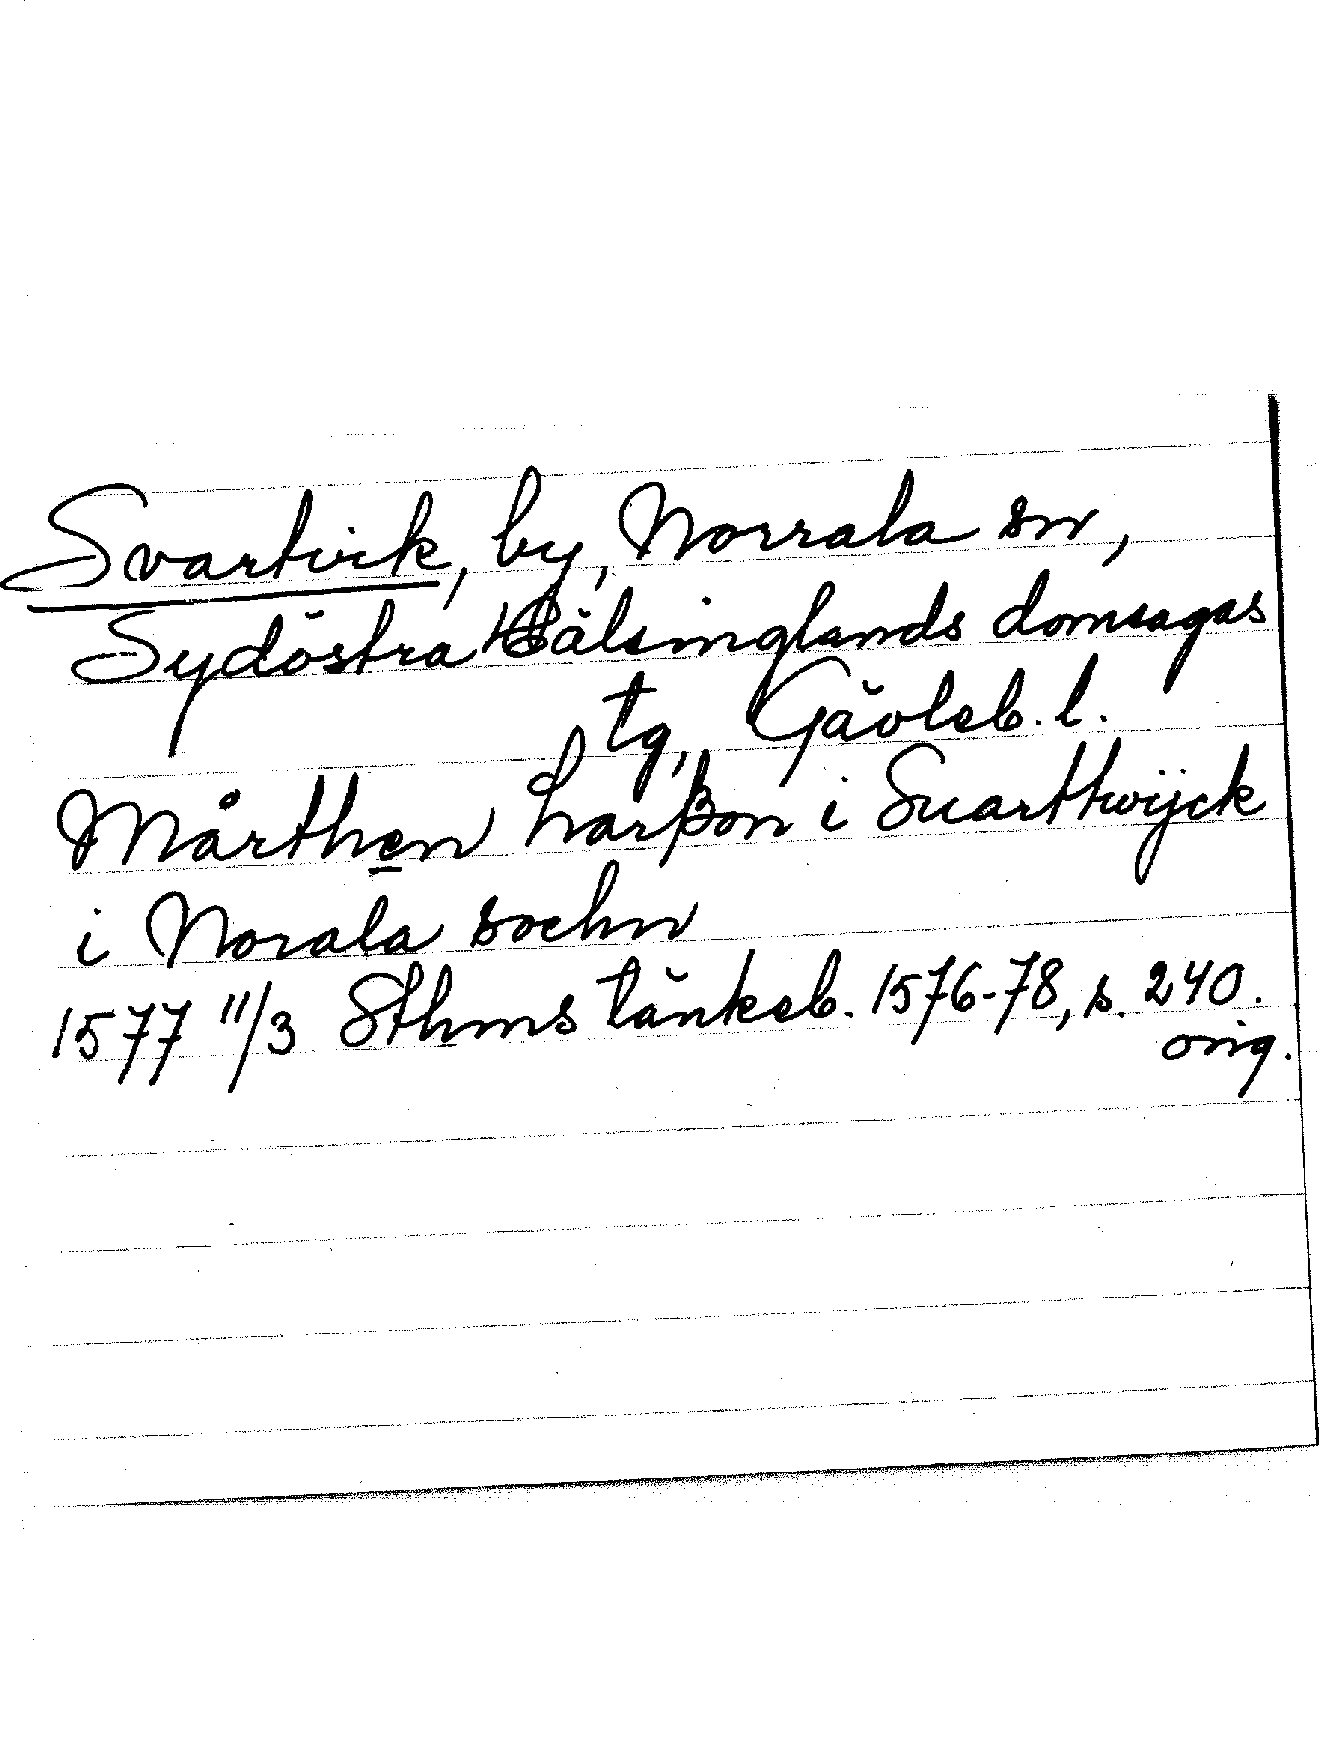 Svartvik, by, Norrala sn,
Sydöstra Hälsinglands domsagas
tg, Gävleb. l.
Mårthen Larßon i Suarttwijck
i Norala sochn
1577 11/3 Sthms tänkeb. 1576-78, s. 240.
orig.